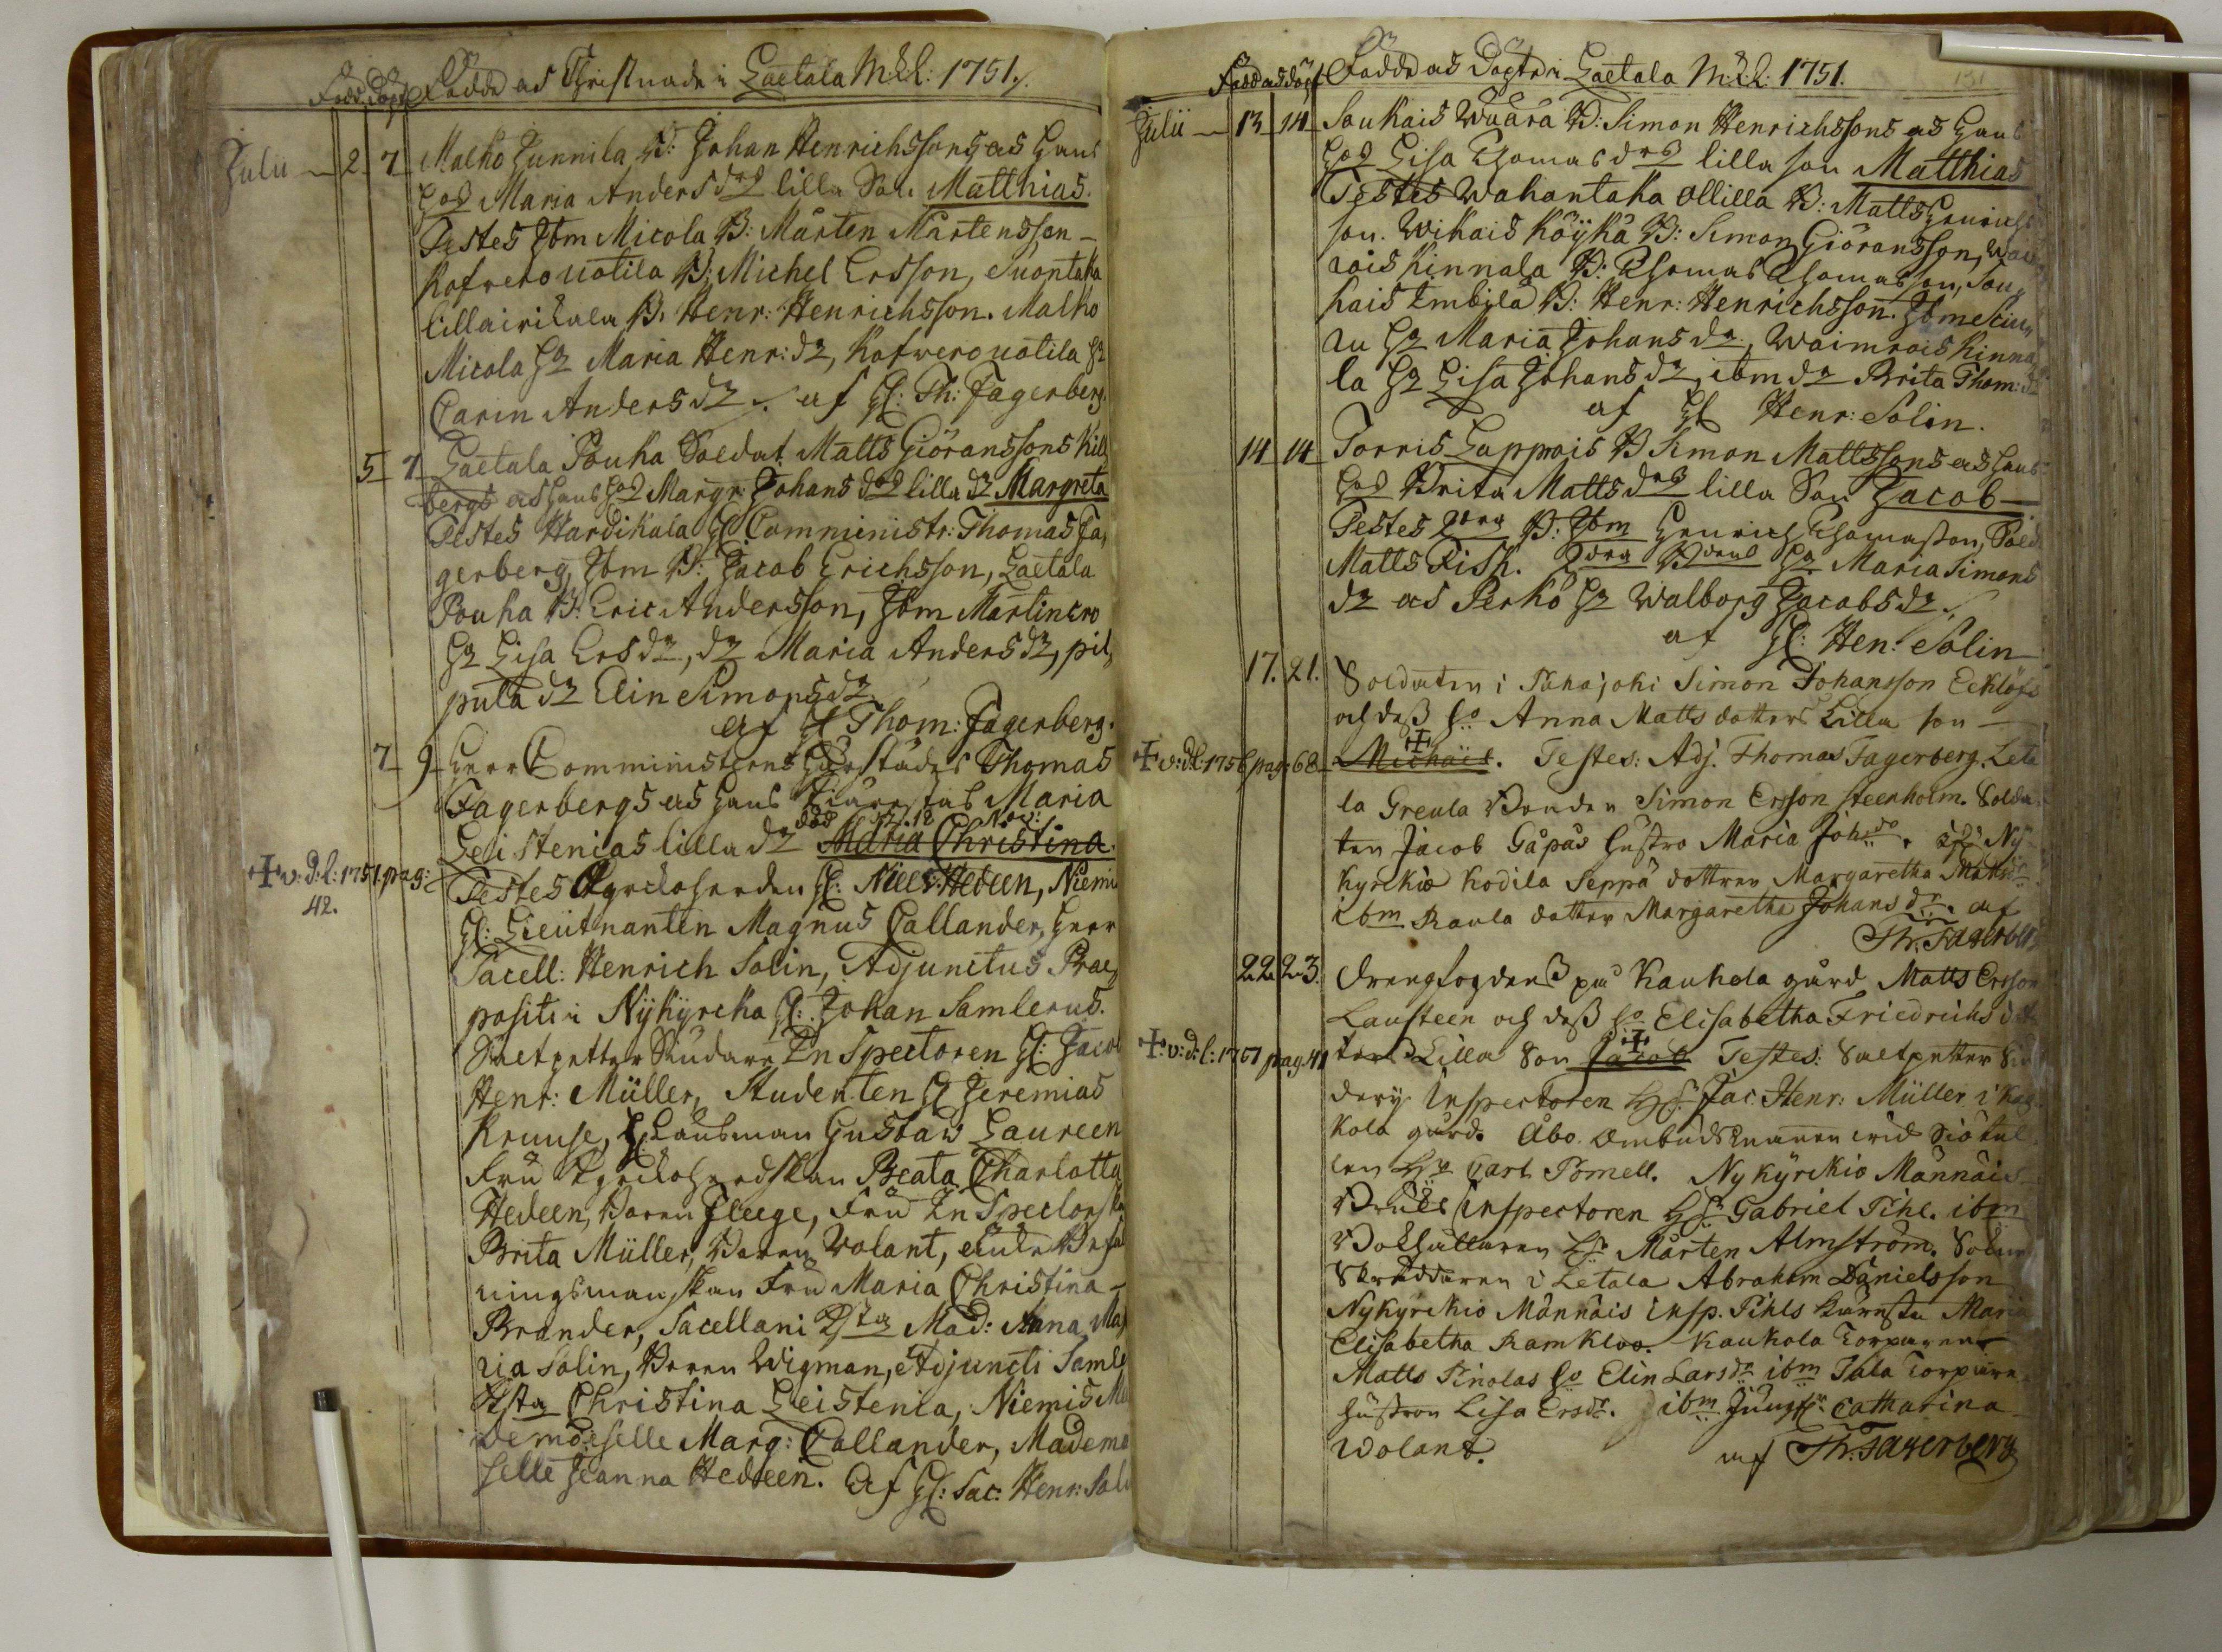 Född Döpt Födde as Christnade i Laetala M:k:l: 1751.
Julii 2 7 Malko Junnila B: Johan Henrichssons as hans
Hos Maria Anders drs lilla Son Matthias.
Testes Ibm Micola B: Mårten Mårtensson
Kofvero uotila B: Michel Ersson, Suontaka
lillairikala B. Henr: Henrichsson. Malko
Micola H:a Maria Henr: dr, Kofwero uotila H:a
Carin Anders dr. af H: Th: Fagerberg.
5 7 Laetala Pouha Soldat Matts Giöranssons Kill
bergs as hans Hos Margr: Johans drs lilla dr Margreta
Testes Hardikala H: Comministr: Thomas Fa,
gerberg, Ibm B: Jacob Erichsson, Laetala
Pouha B: Eric Andersson, Ibm Martin ero
H:a Lisa Ers dr, dr Maria Anders dr, pil,
pula dr Elin Simons dr
af H Thom: Fagerberg.
7 9 Herr Comministrens härstädes Thomas
Fagerbergs as hans Kiärestas Maria
död 1751. 18 Nov:
Leistenias lilla dr Maria Christina.
+ v: d: l: 1751. pag:
42.
Testes Kyrckoherden H: Niels Hedeen, Niemi
H: Lieutnanten Magnus Callander, Herr
Sacell: Henrich Solin, Adjunctus Prae,
positi i Nykyrcka H: Johan Samlerus.
Saltpetter Siudare Inspectoren H: Jacob
Henr: Müller, Studenten H Jeremias
Kruuse, H: Länsman Gustaw Laureen
Fru Kyrckoherdskan Beata Charlotta
Hedeen, Boren Fleege, Fru Inspectorska
Brita Müller, Boren Wolant,
ningsmanskan Fru Maria Christina
Brander, Sacellani Mad: Anna Ma,
ria Solin, Boren Wigman, Adjuncti Samle
Christina Leistenia, Niemis Ma
demoiselle Marg: Callander, Mademo
selle Jeanna Hedeen. Af H: Sac: Henr: Soli
Född as döpt Födde as Döpte i Laetala M:k:l: 1751.
131
Julii 13 14 Soukais Wuåra B: Simon Henrichssons as hans
Hos Lisa Thomas drs lilla son Matthias
Testes Wahantaka ollilla B: Matts Henrichs
son. Wikais Köykä B: Simon Giöransson, Wai
rois Kinnala B: Thomas Thomasson, Sou,
kais Imbila B: Henr: Henrichsson. Ibm
ru H:a Maria Johans dr, Waimrois Kinna
la H:a Lisa Johans dr, ibm dr Brita Thom: dr
af H Henr: Solin.
14 14 Torris Lapprois B Simon Mattssons as hans
Hos Brita Matts drs lilla Son Jacob
Testes B: Ibm Henrich Thomasson, Sold
Matts Fisk. H:a Maria Simons
dr as Perko H:a Walborg Jacobs dr.
af H: Hen: Solin
17. 21. Soldaten i Pahajoki Simon Johansson Eeklöfs
och dess ho Anna Matts dotters Lilla son
+ v: d: l: 1756 pag: 68 Michaël. Testes: Adj. Thomas Fagerberg. Leta
la Greula Bonden Simon Ersson steenholm. Solda
ten Jacob Gåpås hustro Maria Joh: dr. Ny
kyrckio Kodila Seppä dottren Margaretha Matts dr
ibm Raula dotter Margaretha Johans dr. af
Th. Fagerberg
22 23. Drengfogdens på Kaukola gård Matts Ersson
Lausteen och dess ho Elisabetha Friedrichs dot
+: v: d: l: 1751 pag 41 ters Lilla Son Jacob Testes: Saltpetter Siu
dery Inspectoren Hr Jac. Henr: Müller i Kau
kola gård. Åbo Ombudsmannen wid Siötul
len Hr Carl Pomell. Nykyrckio Männäis
Bruks Inspectoren Hr Gabriel Pihl. ibm
Bokhållaren Hr Mårten Almström. Sockne
Skräddaren i Letala Abraham Danielsson
Nykyrckio Männäis Insp. Pihls Kärесta Maria
Elisabetha Ramkloo. Kaukola Torparen
Matts Pinolas ho Elin Lars dr ibm Tala Torpare
hustron Lisa Ersdr. ibm Jungfr Catharina
Wolant. af Th. Fagerberg